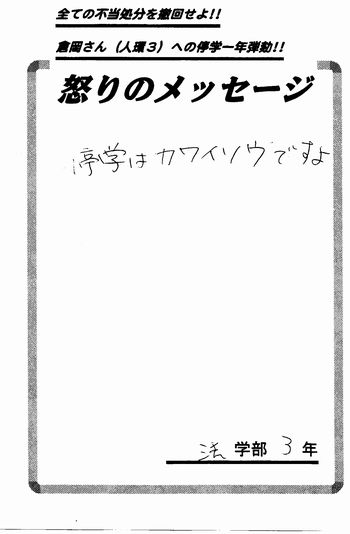 全ての不当処分を撤回せよ!!
倉岡さん（人環３）への停学一年弾劾!!
怒りのメッセージ
停学はカワイソウですよ
法学部3年